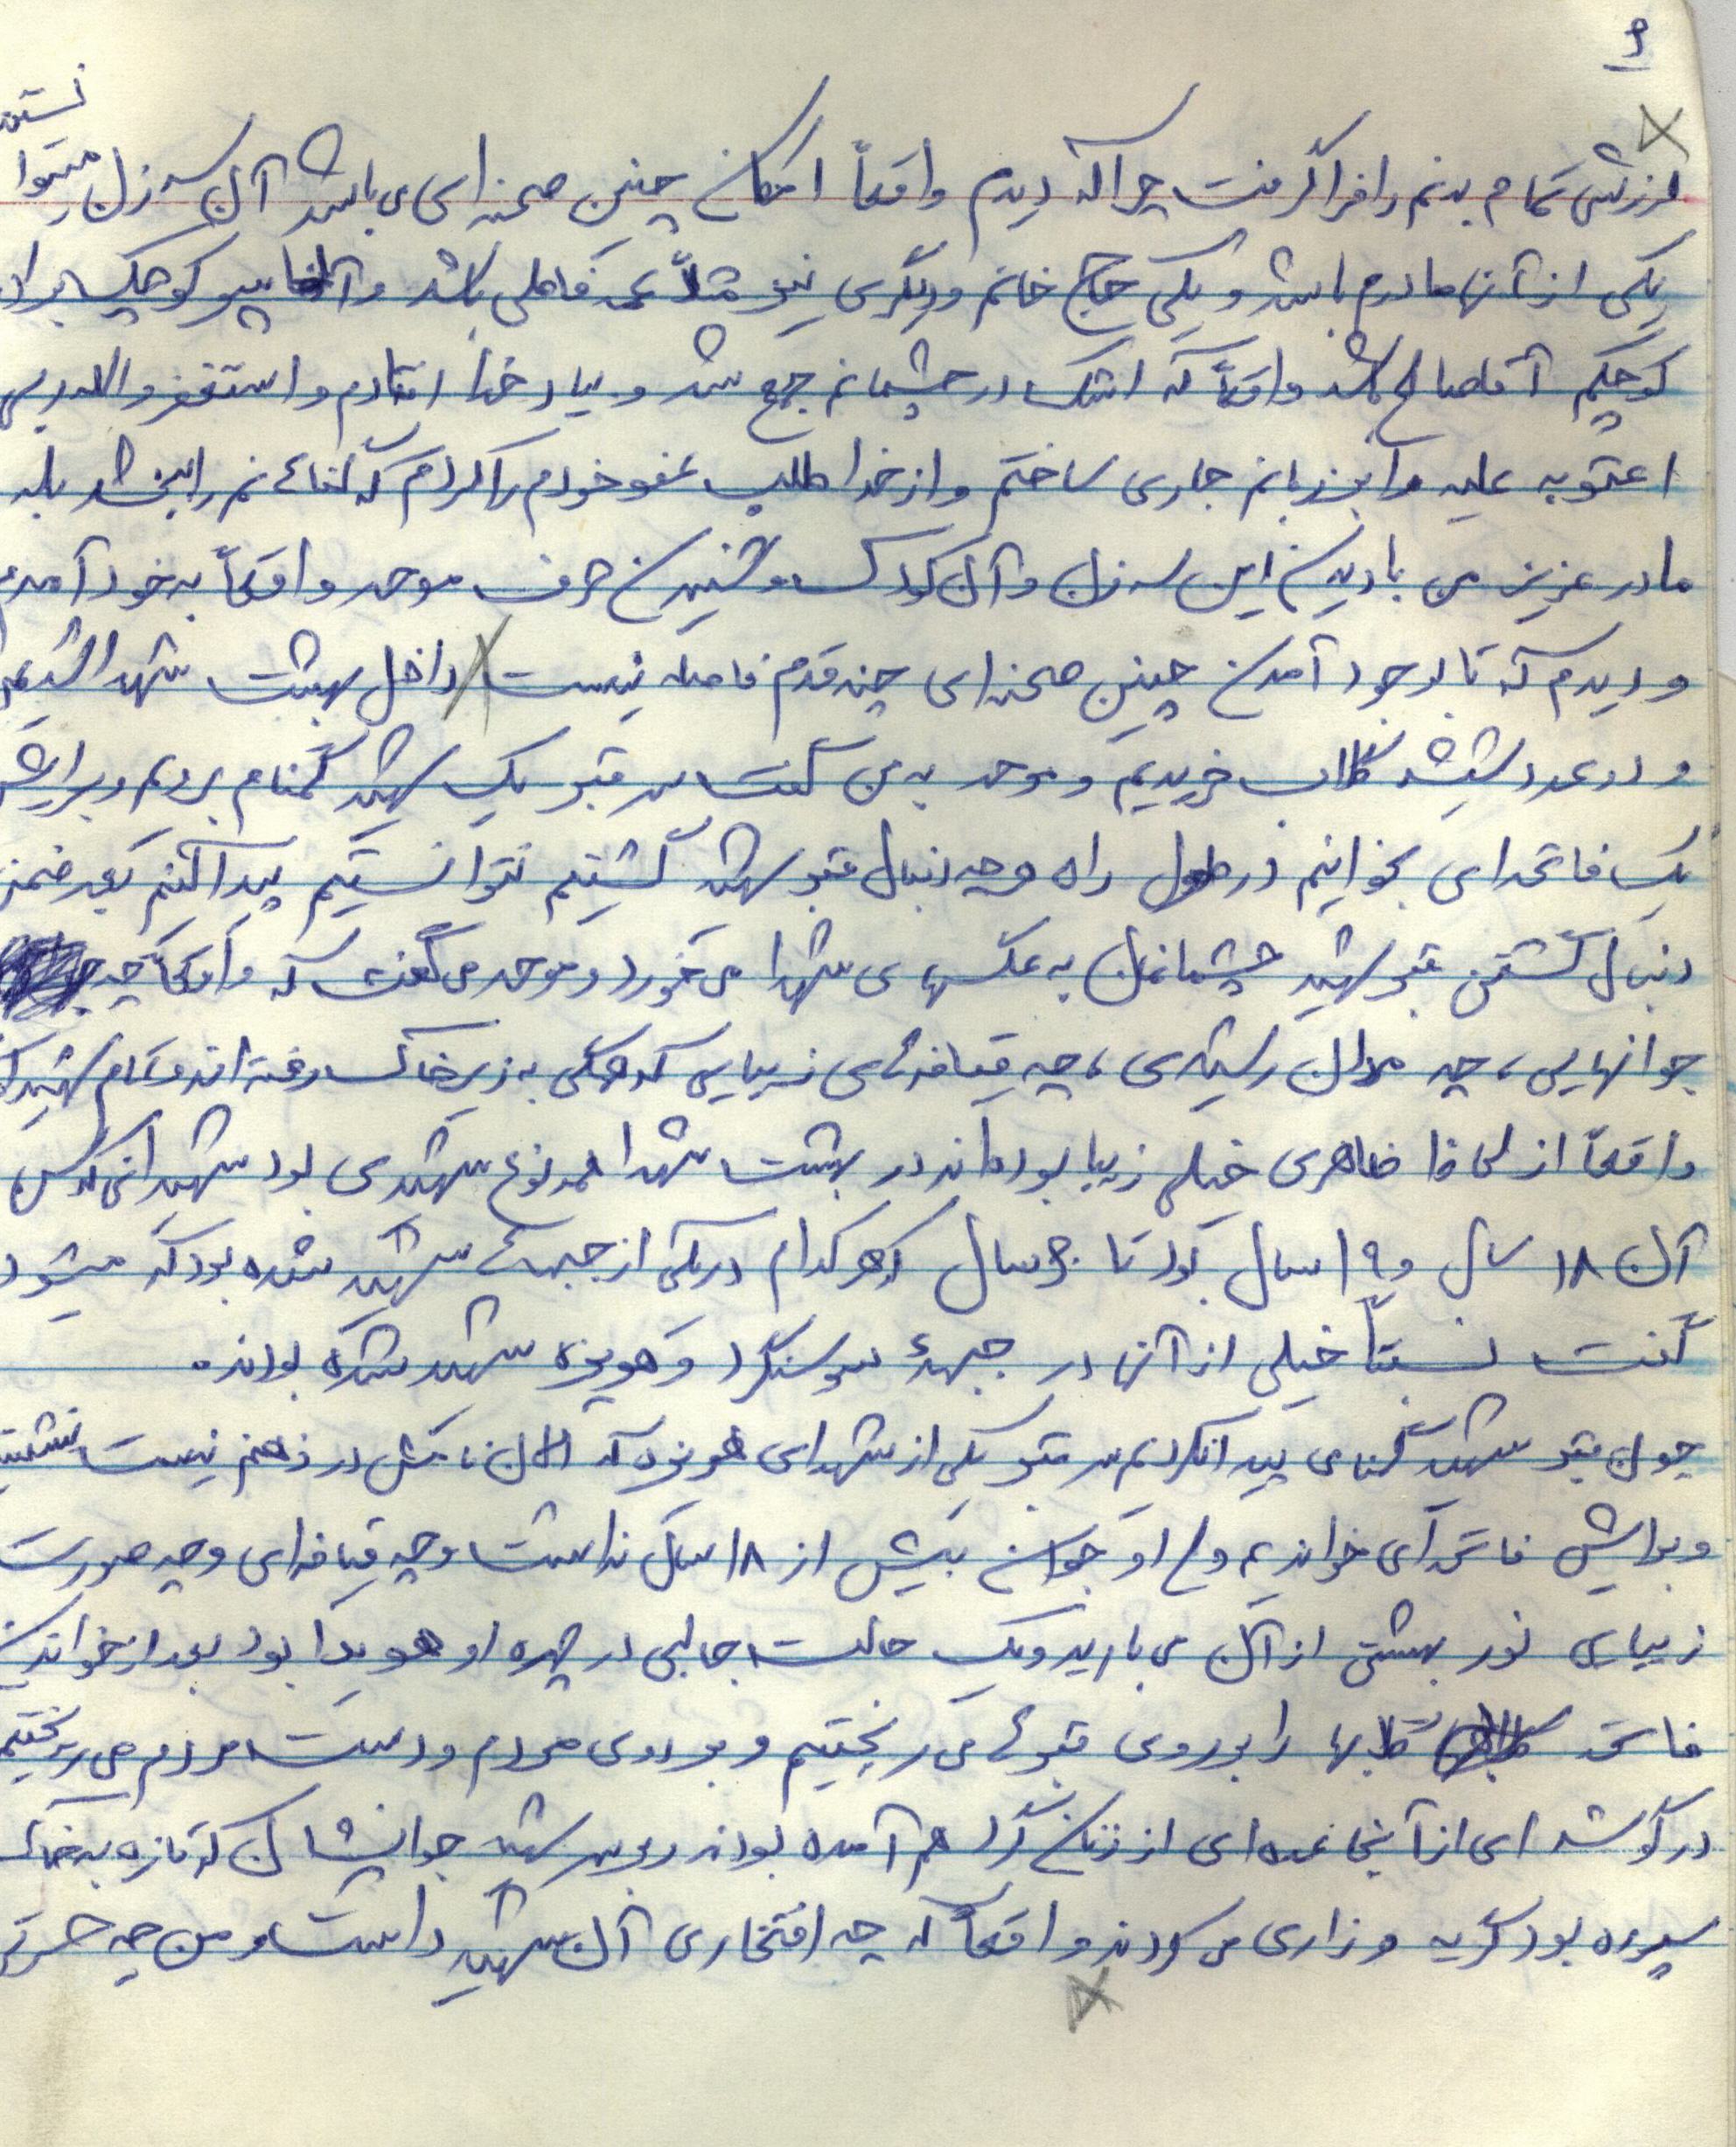 ۹
لرزش تمام بدنم را فرا گرفت چرا که دیدم واقعاً امکان چنین صحنه‌ای می‌باشد آن سه زن میتوا
نستن
یکی از آنها مادرم باشد و یکی حاج خانم و دیگری نیز مثلاً عمه فاملی باشد و آن پسر کوچک برادر
کوچکم آقا صالح باشد واقعاً که اشک در چشمانم جمع شد و بیاد خدا افتادم و استغفرو الله ربی
اعتوبه علیه را بر زبانم جاری ساختم و از خدا طلب عفو خودم را کردم که گناهانم را ببخشد بله
مادر عزیز من با دیدن این سه زن و آن کودک و شنیدن حرف موحد واقعاً به خود آمدم
و دیدم که تا بوجود آمدن چنین صحنه‌ای چند قدم فاصله نیست داخل بهشت شهدا شدیم
و دو عدد شیشه گلاب خریدیم و موحد به من گفت سر قبر یک شهید گمنام برویم و برایش
یک فاتحه‌ای بخوانیم در طول راه هرچه دنبال قبر شهید گشتیم نتوانستیم پیدا کنیم بعد ضمن
دنبال گشتن قبر شهید چشمانمان به عکسهای شهدا می‌خورد و موحد می‌گفت که واقعاً چه
جوانهایی، چه مردان رشیدی، چه قیافه‌های زیبایی که همگی به زیر خاک رفته‌اند و تمام شهیدا
واقعاً از لحاظ ظاهری خیلی زیبا بوده‌اند در بهشت شهدا همه نوع شهیدی بود شهیدانی که سن
آن ۱۸ سال و ۱۹ سال بود تا سال که هر کدام در یکی از جبهه‌ها شهید شده بود که میشود
گفت نسبتاً خیلی از آنها در جبههٔ سوسنگرد و هویزه شهید شده بودند.
چون قبر شهید گمنامی پیدا نکردیم سر قبر یکی از شهدای هویزه که الان نامش در ذهنم نیست نشستیم
و برایش فاتحه‌ای خواندیم ولی او جوانی بیش از ۱۸ سال نداشت و چه قیافه‌ای و چه صورت
زیبایی نور بهشتی از آن می‌بارید و یک حالت جالبی در چهره او هویدا بود بعد از خواندن
فاتحه گلابها را بر روی قبرها می‌ریختیم و بر روی مردم و دست مردم می‌ریختیم
در گوشه‌ای از آنجا عده‌ای از زنان گرد هم آمده بودند و بر سر شهید جوانشان که تازه به خاک
سپرده بود گریه و زاری می‌کردند واقعاً که چه افتخاری آن شهید داشت و من چه حسرتی